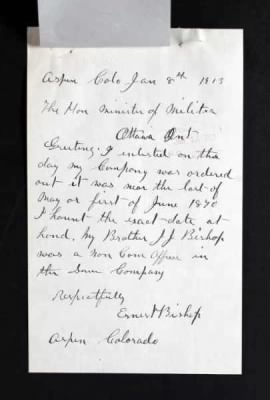 Aspen Colo Jan 8th 1913
The Hon Minister of Militia
Ottawa Ont
Greeting. I enlisted on the
day my Company was ordered
out it was near the last of
May or first of June 1870
I haunt the exact date at
hand. My Brother J J Bishop
was a Non Com Officer in
the Same Company
Respectfully
Ernest Bishop
Aspen Colorado